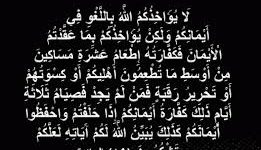 لَا يُوَاخِذُكُمُ اللَّهُ بِاللَّغْوِ فِي
أَيْمَانِكُمْ وَلَكِنْ يُوَاخِذُكُمْ بِمَا عَقَّدْتُمُ
الْأَيْمَانَ فَكَفَّارَتُهُ إِطْعَامُ عَشَرَةِ مَسَاكِينَ
مِنْ أَوْسَطِ مَا تُطْعِمُونَ أَهْلِيكُمْ أَوْ كِسْوَتُهُمْ
أَوْ تَحْرِيرُ رَقَبَةٍ فَمَنْ لَمْ يَجِدْ فَصِيَامُ ثَلَاثَةِ
أَيَّامٍ ذَلِكَ كَفَّارَةُ أَيْمَانِكُمْ إِذَا حَلَفْتُمْ وَاحْفَظُوا
أَيْمَانَكُمْ كَذَلِكَ يُبَيِّنُ اللَّهُ لَكُمْ آيَاتِهِ لَعَلَّكُمْ